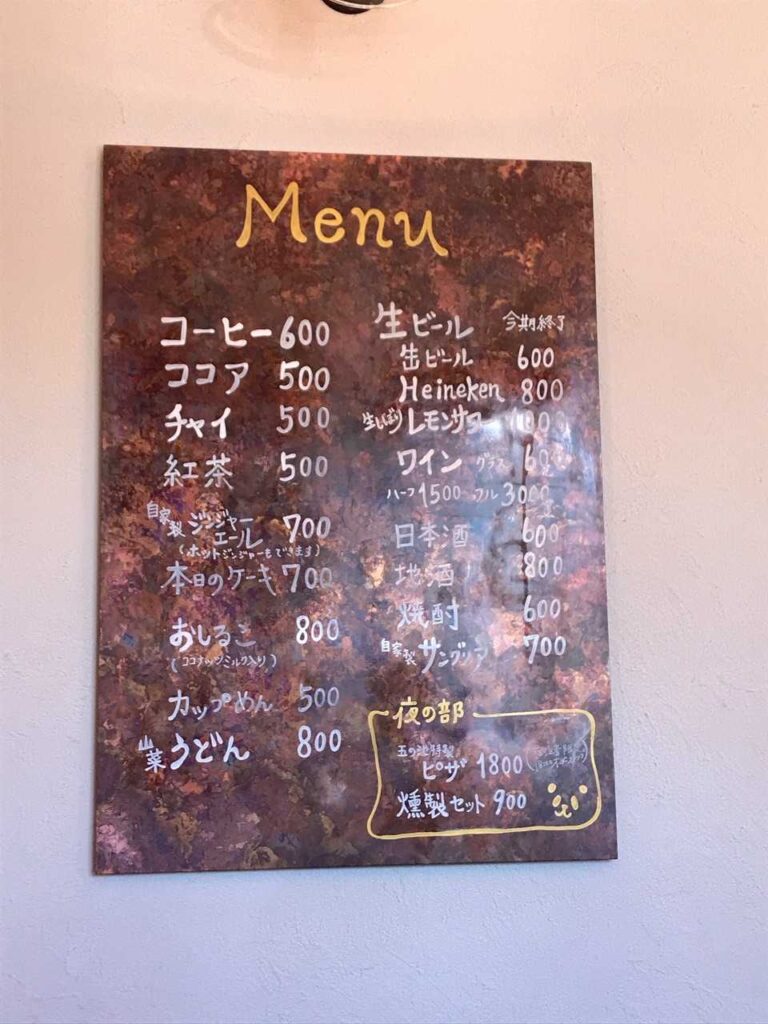 Menu
コーヒー 600
ココア 500
チャイ 500
紅茶 500
自家製 ジンジャーエール 700
(ホットジンジャーもできます)
本日のケーキ 700
おしるこ 800
(ココナッツミルク入り)
カップめん 500
山菜 うどん 800
生ビール 今期終了
缶ビール 600
Heineken 800
生しぼり レモンサワー
ワイン グラス
ハーフ 1500 フル 3000
日本酒 600
地酒 800
焼酎 600
自家製 サングリア 700
夜の部
五の池特製
ピザ 1800
燻製セット 900